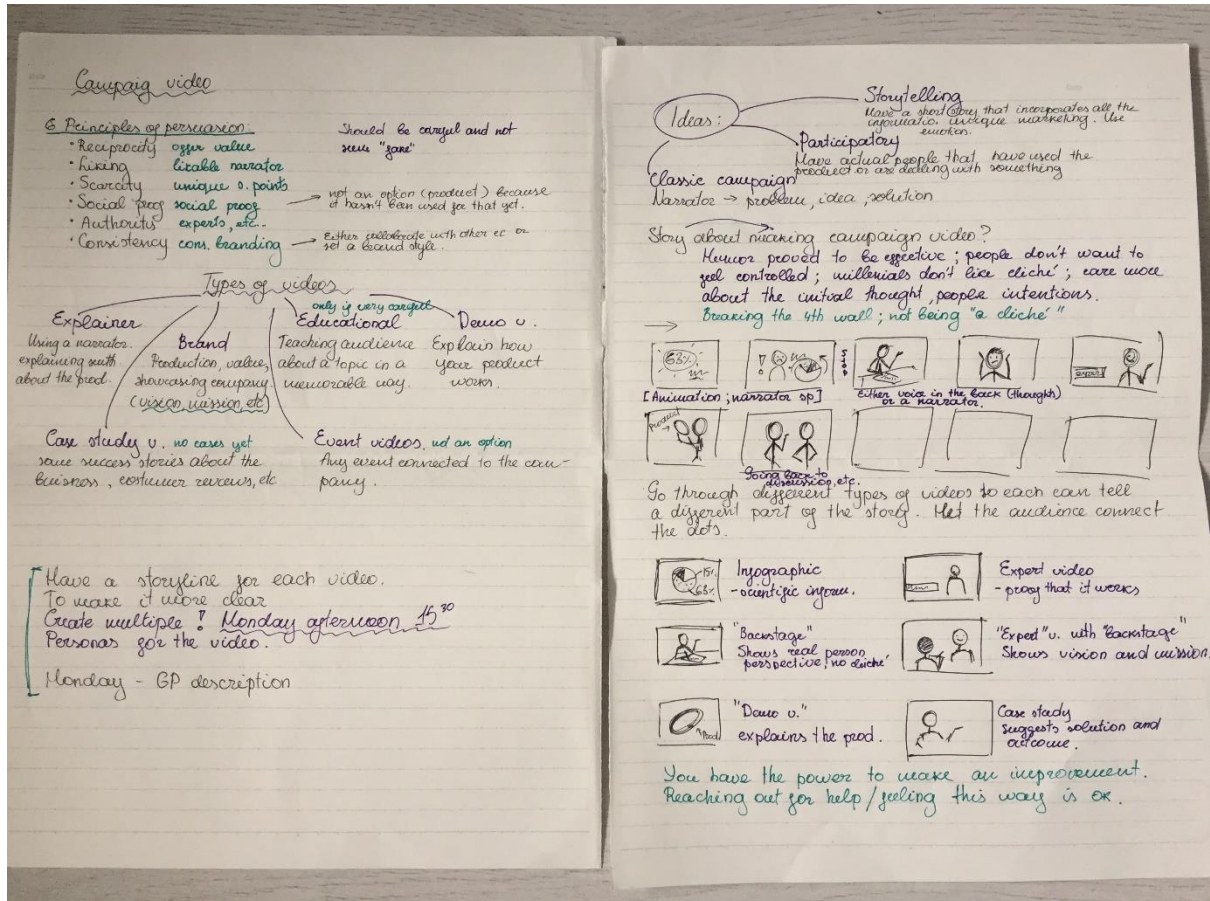 Campaig video
6 Principles of persuasion:
Should be careful and not
seem "fake"
• Reciprocity offer value
• Liking likable narrator
• Scarcity unique s. points
• Social proof social proof
→ not an option (product) because
it hasn't been used for that yet.
• Authoritis experts, etc..
• Consistency cons. branding
→ Either collaborate with other ec or
set a brand style.
Types of videos
Explainer
Using a narrator.
explaining smth
about the prod.
Brand
Production, value,
showcasing company
(vision, mission, etc)
only if very careful
Educational
Teaching audience
about a topic in a
memorable way.
Demo v.
Explain how
your product
works.
Case study v. no cases yet
some success stories about the
buisness, costumer reviews, etc
Event videos, not an option
Any event connected to the com-
pany.
Have a storyline for each video.
To make it more clear
Create multiple ! Monday afternoon 15³⁰
Personas for the video.
Monday - GP description
Ideas:
Storytelling
Have a short story that incorporates all the
informatio. unique marketing. Use
emotion.
Participatory
Have actual people that have used the
product or are dealing with something
Classic campaign
Narrator → problem, idea, solution
Story about making campaign video?
Humor proved to be effective; people don't want to
feel controlled; millenials don't like cliché; care more
about the initual thought, people intentions.
Breaking the 4th wall; not being "a cliché"
63%
STOP
[Animation; narrator sp]
Either voice in the back (thoughts)
or a narrator.
Product
Going back to
discussion, etc.
Go through different types of videos so each can tell
a different part of the story. Het the audience connect
the dots.
15%
63%
Infographic
- scientific inform.
Expert video
- proof that it works
"Backstage"
Shows real person
perspective; no cliché
"Expert" v. with "backstage"
Shows vision and mission.
Prod
"Demo v."
explains the prod.
Case study
suggests solution and
outcome.
You have the power to make an improvement.
Reaching out for help/feeling this way is OK.